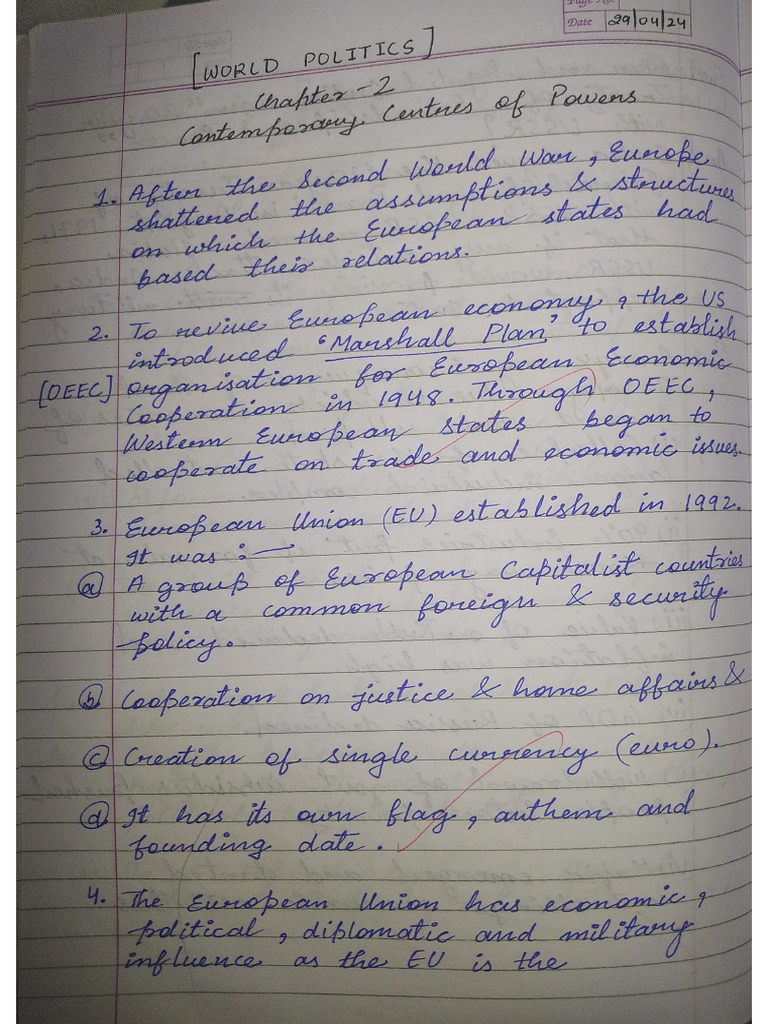 Page No.
Date 29/04/24
[WORLD POLITICS]
Chapter-2
Contemporary Centres of Powers
1. After the Second World War, Europe
shattered the assumptions & structures
on which the European states had
based their relations.
2. To revive European economy, the US
introduced 'Marshall Plan,' to establish
[OEEC] organisation for European Economic
Cooperation in 1948. Through OEEC,
Western European states began to
cooperate on trade and economic issues.
3. European Union (EU) established in 1992.
It was :—
(a) A group of European Capitalist countries
with a common foreign & security
policy.
(b) Cooperation on justice & home affairs &
(c) Creation of single currency (euro).
(d) It has its own flag, anthem and
founding date.
4. The European Union has economic,
political, diplomatic and military
influence as the EU is the